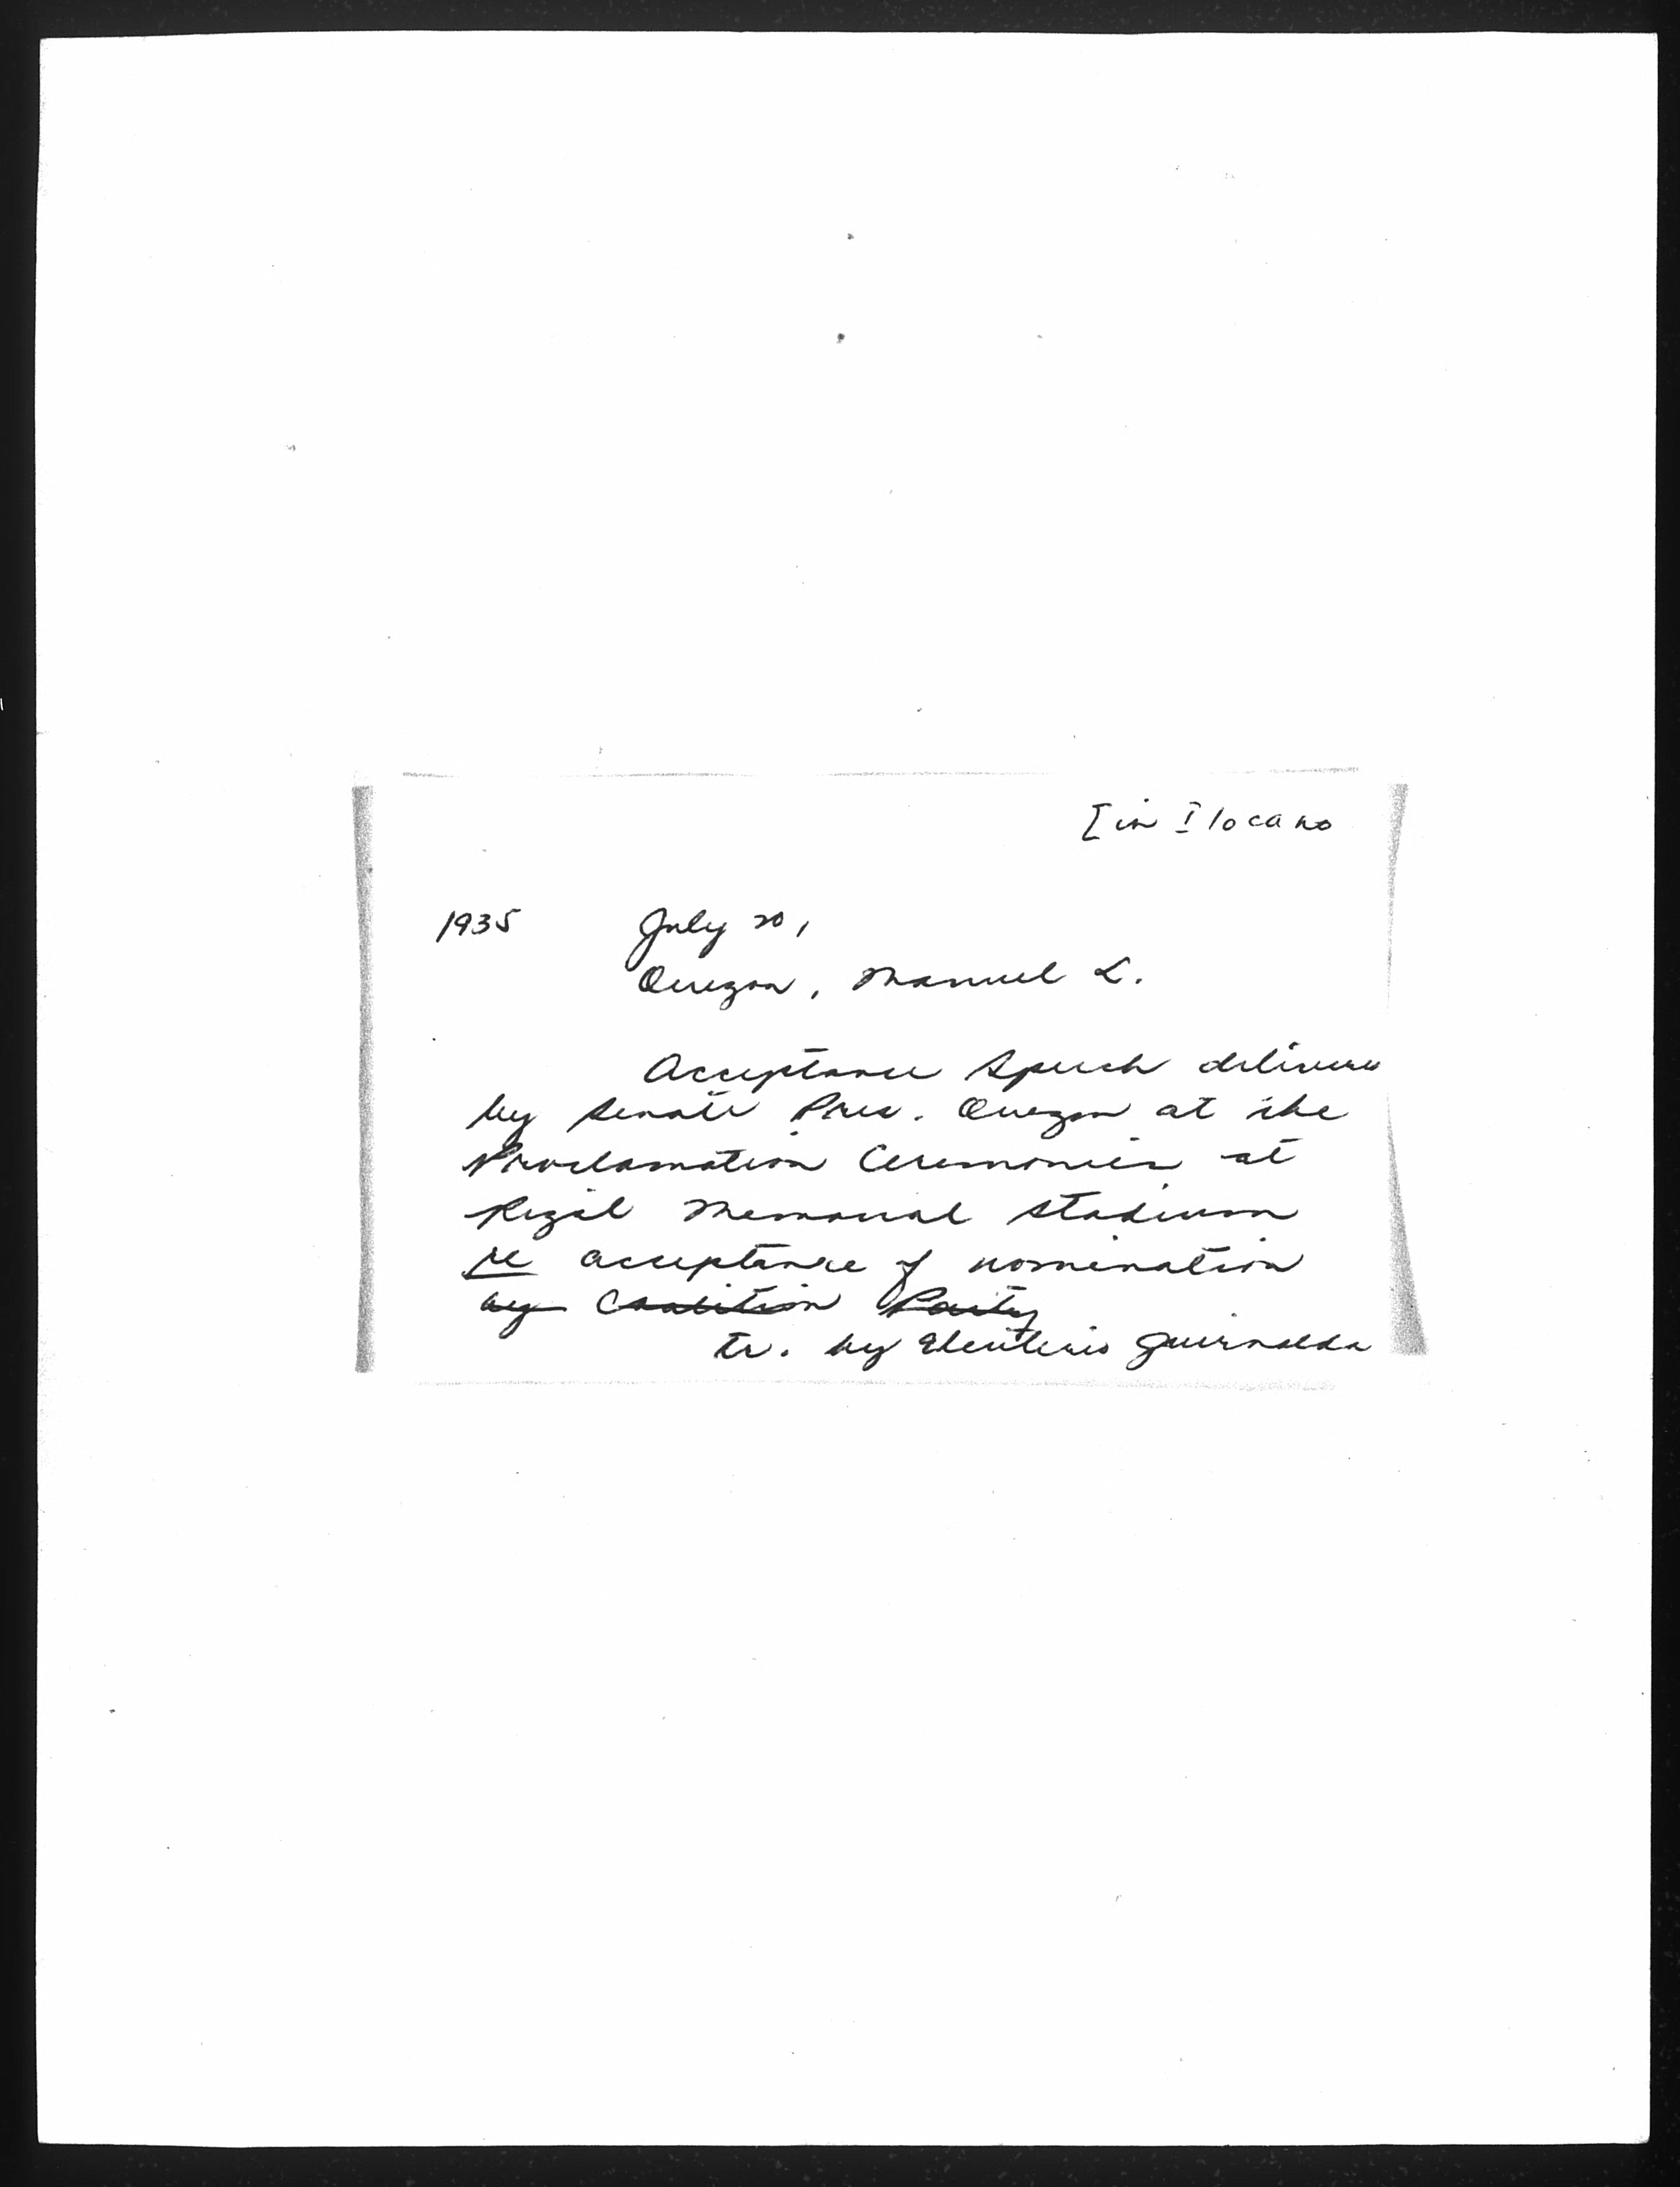 [in Ilocano
1935 July 20,
Quezon, Manuel L.
Acceptance Speech delivered
by Senate Pres. Quezon at the
Proclamation Ceremonies at
Rizal Memorial Stadium
re acceptance of nomination
by Coalition Party
tr. by Eleuterio Guirnalda